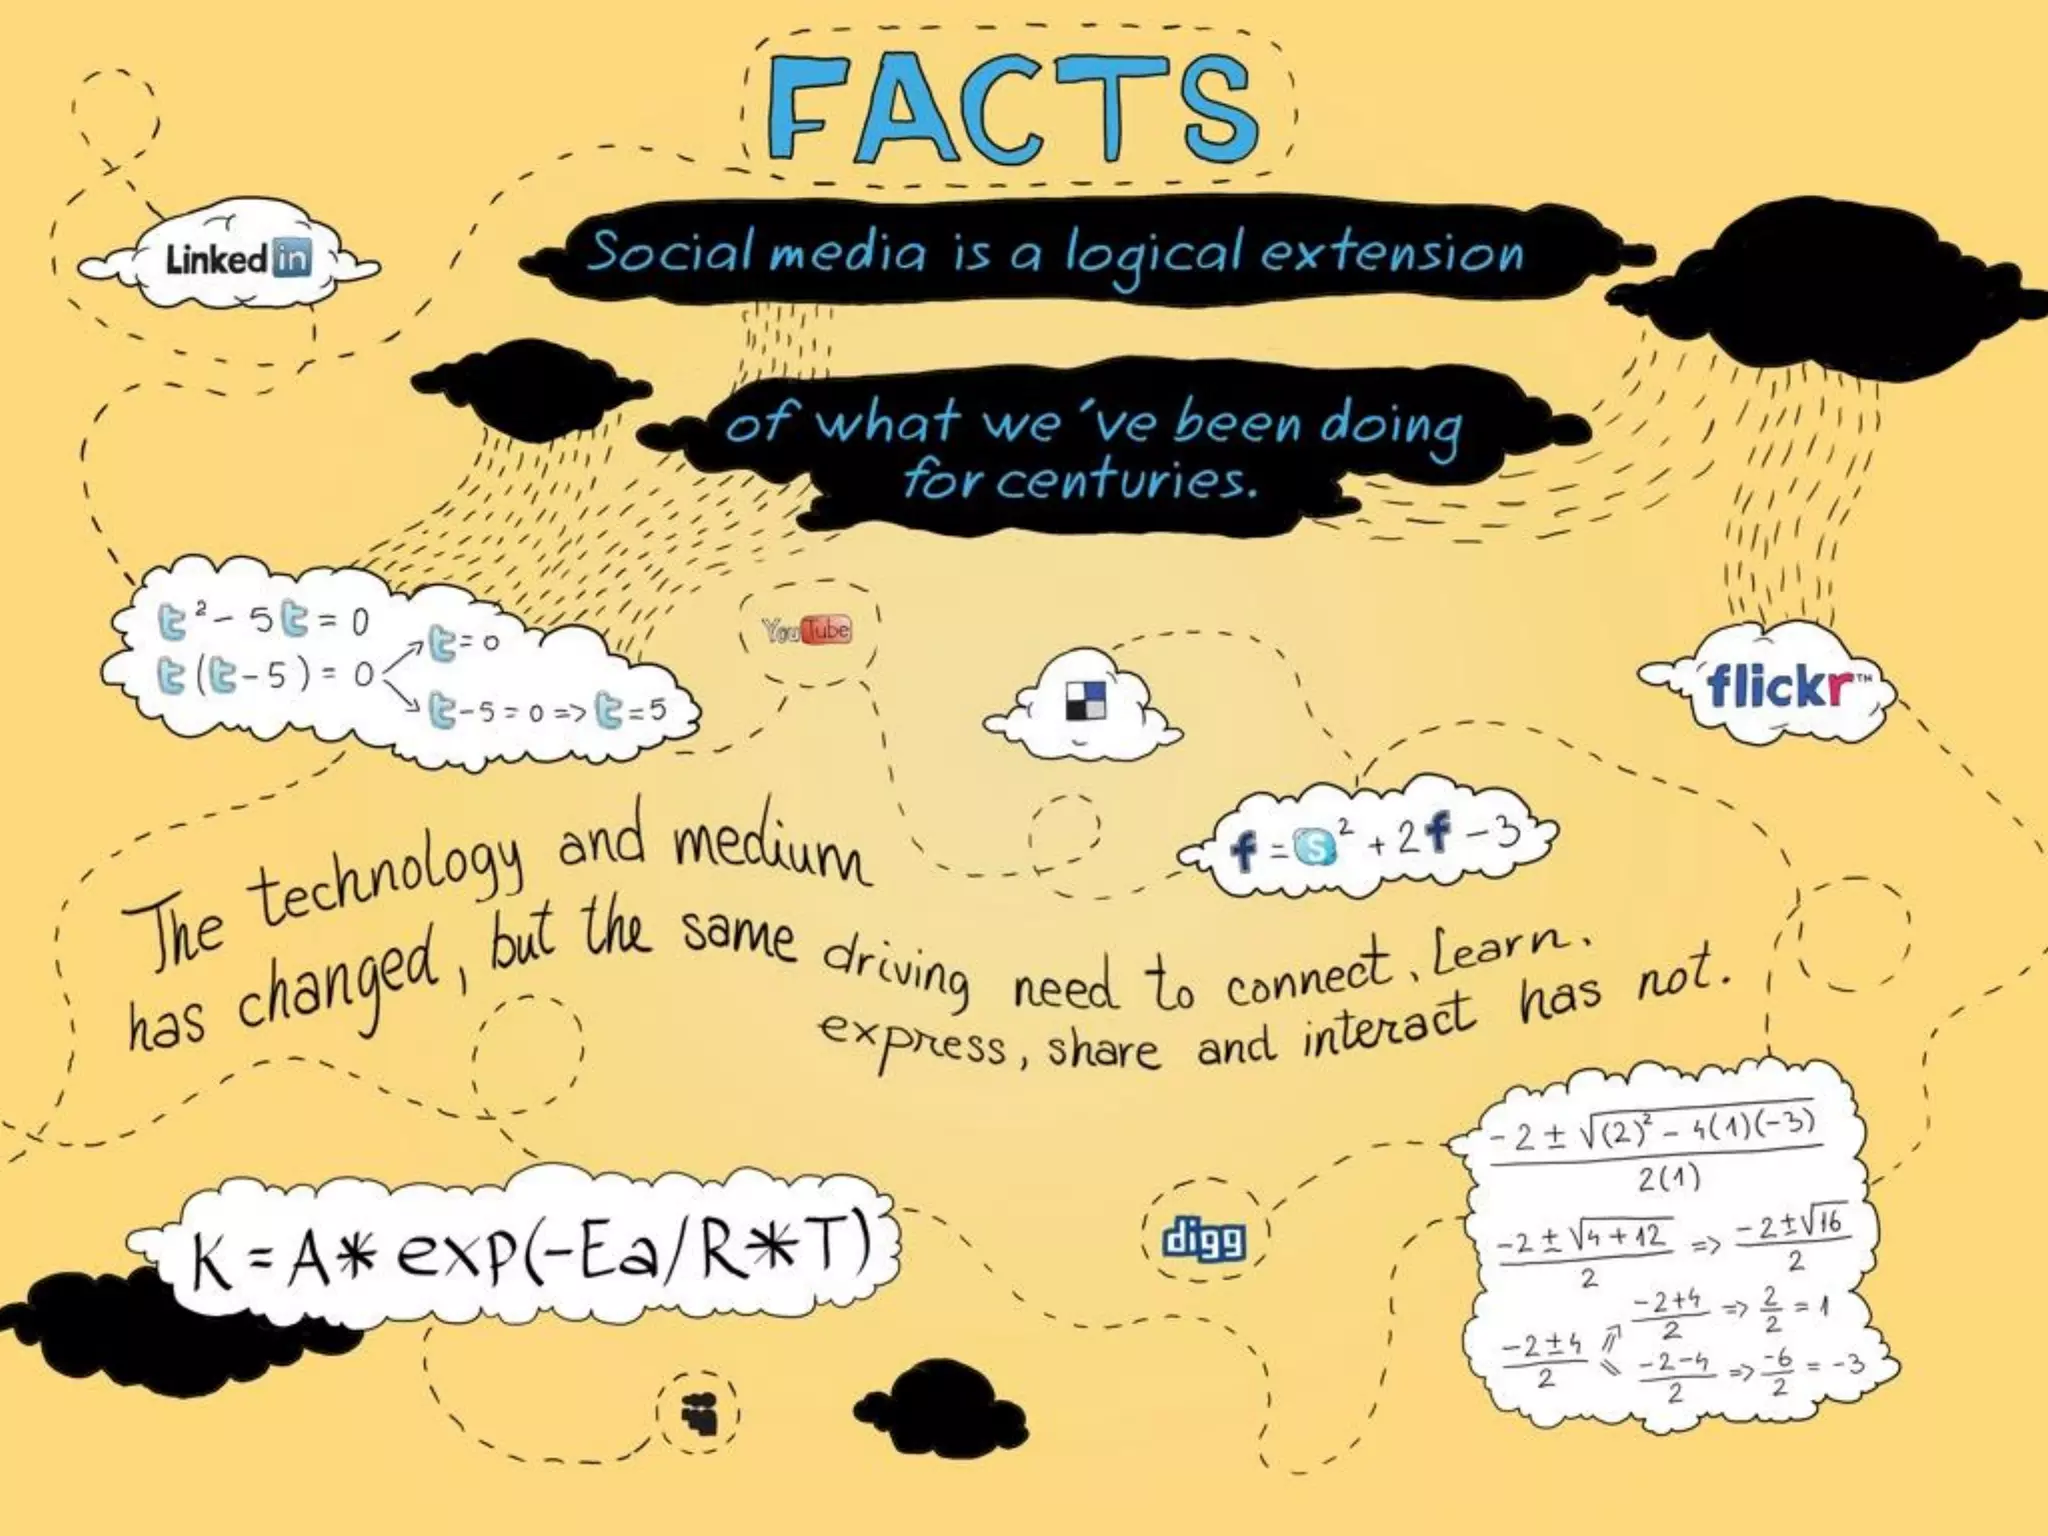 FACTS
Linked in
Social media is a logical extension
of what we've been doing
for centuries.
t² - 5t = 0
t(t-5) = 0
t = 0
t-5 = 0 => t = 5
YouTube
flickr™
f = S² + 2f - 3
The technology and medium
has changed, but the same driving need to connect, learn,
express, share and interact has not.
K = A* exp(-Ea/R*T)
digg
-2 ± √(2)² - 4(1)(-3)
2(1)
-2 ± √4+12 => -2 ± √16
2 2
-2+4 => 2 = 1
2 2
-2 ± 4
2
-2-4 => -6 = -3
2 2